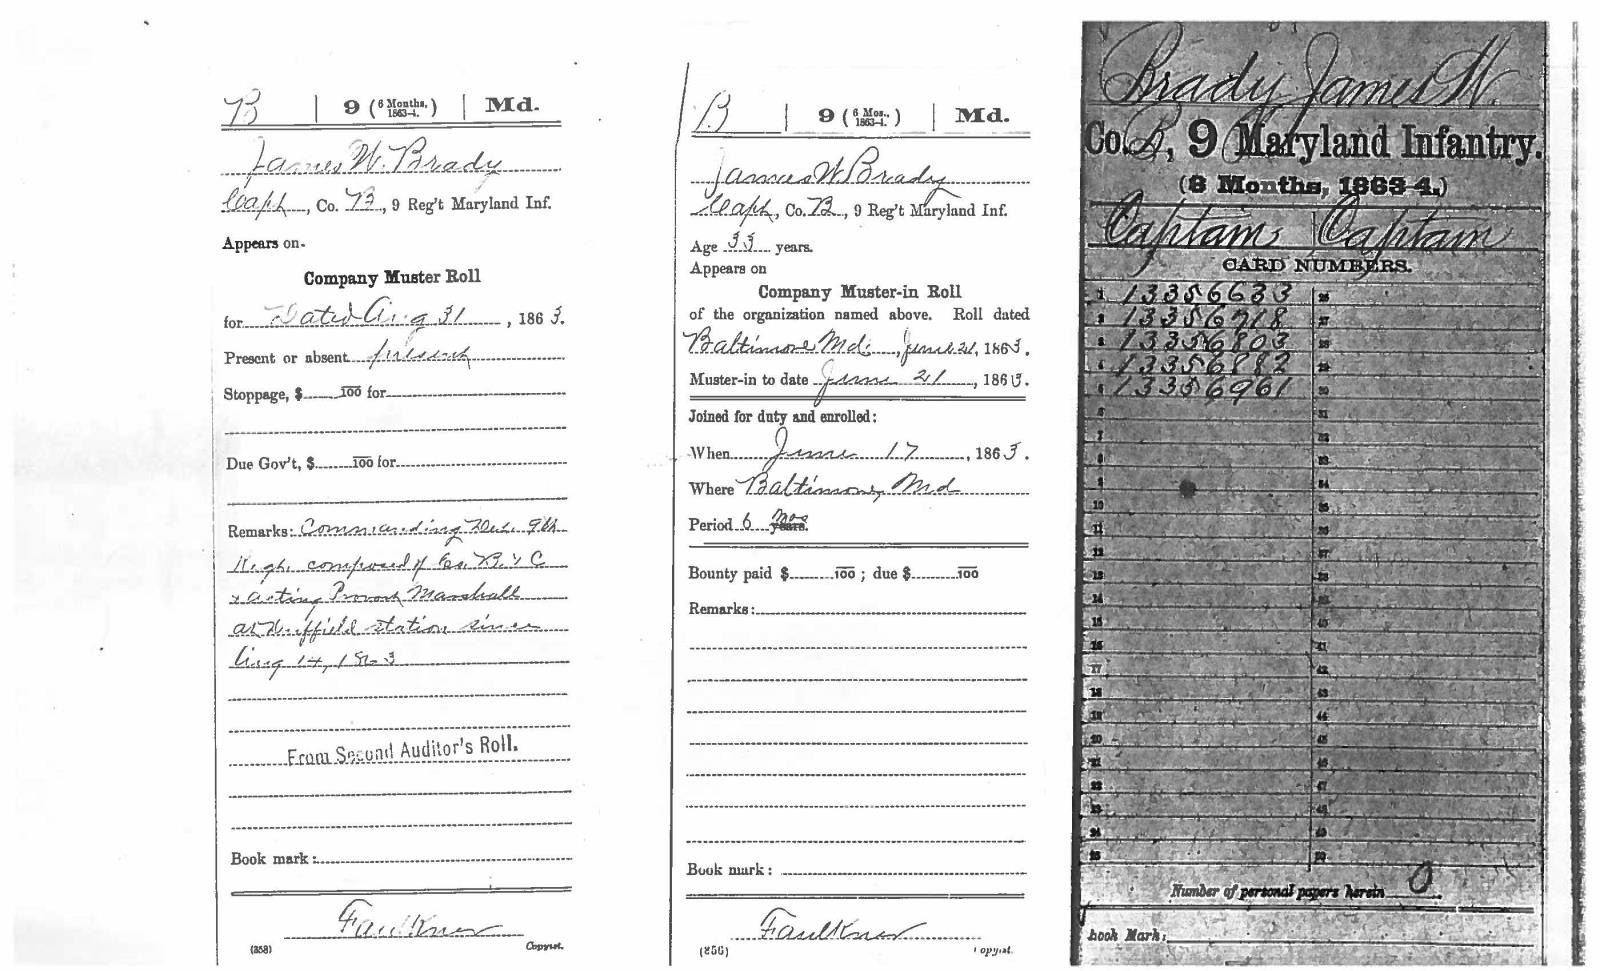 B | 9 (6 Months, 1863-4.) | Md.
James W. Brady
Capt, Co. B, 9 Reg't Maryland Inf.
Appears on
Company Muster Roll
for Dated Aug 31, 1863.
Present or absent present
Stoppage, $ 100 for
Due Gov't, $ 100 for
Remarks: Commanding Det. 9th
Regt. composed of Co. B. & C
& acting Provost Marshall
at Duffield station since
Aug 14, 1863
From Second Auditor's Roll.
Book mark:
Faulkner
(358) Copyist.
B | 9 (6 Mos., 1863-4.) | Md.
James W Brady
Capt, Co. B, 9 Reg't Maryland Inf.
Age 33 years.
Appears on
Company Muster-in Roll
of the organization named above. Roll dated
Baltimore Md., June 21, 1863.
Muster-in to date June 21, 1863.
Joined for duty and enrolled:
When June 17, 1863.
Where Baltimore, Md
Period 6 mos years.
Bounty paid $ 100 ; due $ 100
Remarks:
Book mark:
Faulkner
(356) Copyist.
Brady James W.
Co. B, 9 Maryland Infantry.
(6 Months, 1863-4.)
Captain | Captain
CARD NUMBERS.
1 13356633 26
2 13356718 27
3 13356803 28
4 13356882 29
5 13356961 30
6 31
7 32
8 33
9 34
10 35
11 36
12 37
13 38
14 39
15 40
16 41
17 42
18 43
19 44
20 45
21 46
22 47
23 48
24 49
25 50
Number of personal papers herein 0
Book Mark: